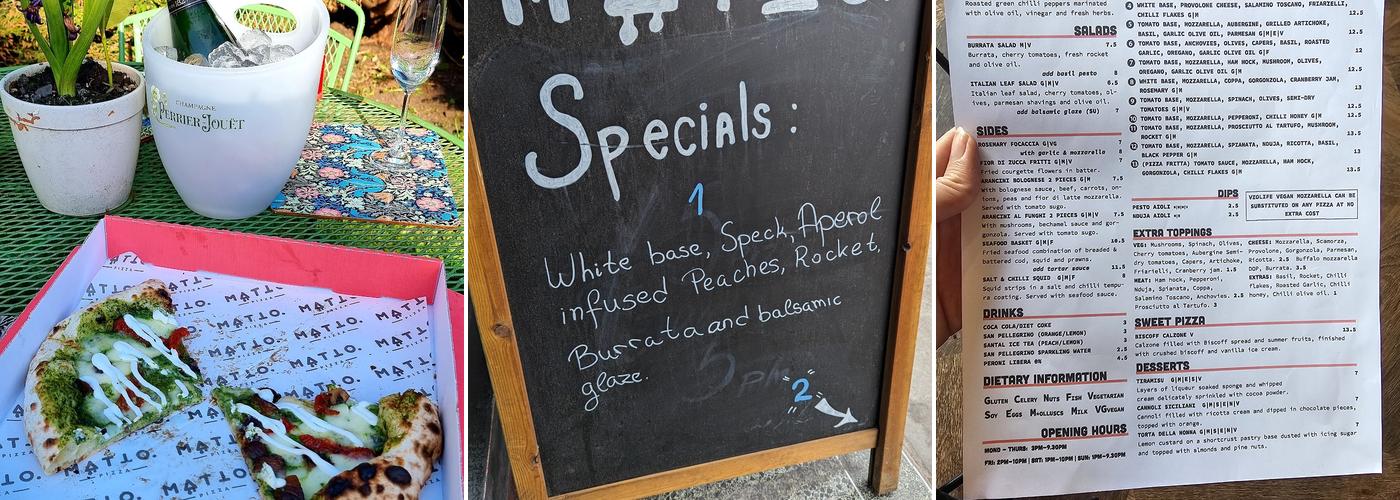 CHAMPAGNE
PERRIER-JOUËT
MATTO.
PIZZA
Specials:
1
White base, Speck, Aperol
infused Peaches, Rocket,
Burrata and balsamic
glaze.
2
Roasted green chilli peppers marinated
with olive oil, vinegar and fresh herbs.
SALADS
BURRATA SALAD M|V 7.5
Burrata, cherry tomatoes, fresh rocket
and olive oil.
add basil pesto 8
ITALIAN LEAF SALAD G|M 6.5
Italian leaf salad, cherry tomatoes, ol-
ives, parmesan shavings and olive oil.
add balsamic glaze (SU) 7
SIDES
ROSEMARY FOCACCIA G|VG 7
with garlic & mozzarella 8
FIOR DI ZUCCA FRITTI G|M|V 7
Fried courgette flowers in batter.
ARANCINI BOLOGNESE 2 PIECES G|M 7.5
With bolognese sauce, beef, carrots, on-
ions, peas and fior di latte mozzarella.
Served with tomato sugo.
ARANCINI AL FUNGHI 2 PIECES G|M|V 7.5
With mushrooms, bechamel sauce and gor-
gonzola. Served with tomato sugo.
SEAFOOD BASKET G|M|F 10.5
Fried seafood combination of breaded &
battered cod, squid and prawns.
add tartar sauce 11.5
SALT & CHILLI SQUID G|M|F 8
Squid strips in a salt and chilli tempu-
ra coating. Served with seafood sauce.
DRINKS
COCA COLA/DIET COKE 3
SAN PELLEGRINO (ORANGE/LEMON) 3
SANTAL ICE TEA (PEACH/LEMON) 3
SAN PELLEGRINO SPARKLING WATER 2.5
PERONI LIBERA 0% 4.5
DIETARY INFORMATION
GLUTEN CELERY NUTS FISH VEGETARIAN
SOY EGGS MOLLUSCS MILK VGVEGAN
OPENING HOURS
MOND - THURS: 3PM-9.30PM
FRI: 2PM-10PM | SAT: 1PM-10PM | SUN: 1PM-9.30PM
4 WHITE BASE, PROVOLONE CHEESE, SALAMINO TOSCANO, FRIARIELLI,
CHILLI FLAKES G|M 12.5
5 TOMATO BASE, MOZZARELLA, AUBERGINE, GRILLED ARTICHOKE,
BASIL, GARLIC OLIVE OIL, PARMESAN G|M|E 12.5
6 TOMATO BASE, ANCHOVIES, OLIVES, CAPERS, BASIL, ROASTED
GARLIC, OREGANO, GARLIC OLIVE OIL G|F 12
7 TOMATO BASE, MOZZARELLA, HAM HOCK, MUSHROOM, OLIVES,
OREGANO, GARLIC OLIVE OIL G|M 13
8 WHITE BASE, MOZZARELLA, COPPA, GORGONZOLA, CRANBERRY JAM,
ROSEMARY G|M 13
9 TOMATO BASE, MOZZARELLA, SPINACH, OLIVES, SEMI-DRY
TOMATOES G|M|V 12.5
10 TOMATO BASE, MOZZARELLA, PEPPERONI, CHILLI HONEY G|M 12.5
11 TOMATO BASE, MOZZARELLA, PROSCIUTTO AL TARTUFO, MUSHROOM,
ROCKET G|M 13.5
12 TOMATO BASE, MOZZARELLA, SPIANATA, NDUJA, RICOTTA, BASIL,
BLACK PEPPER G|M 13
13 (PIZZA FRITTA) TOMATO SAUCE, MOZZARELLA, HAM HOCK,
GORGONZOLA, CHILLI FLAKES G|M 13.5
DIPS
PESTO AIOLI 2.5
NDUJA AIOLI 2.5
VIOLIFE VEGAN MOZZARELLA CAN BE
SUBSTITUTED ON ANY PIZZA AT NO
EXTRA COST
EXTRA TOPPINGS
VEG: Mushrooms, Spinach, Olives,
Cherry tomatoes, Aubergine Semi-
dry tomatoes, Capers, Artichoke,
Friarielli, Cranberry jam. 1.5
MEAT: Ham hock, Pepperoni,
Nduja, Spianata, Coppa,
Salamino Toscano, Anchovies. 2.5
Prosciutto al Tartufo. 3
CHEESE: Mozzarella, Scamorza,
Provolone, Gorgonzola, Parmesan,
Ricotta. 2.5 Buffalo mozzarella
DOP, Burrata. 3.5
EXTRAS: Basil, Rocket, Chilli
flakes, Roasted Garlic, Chilli
honey, Chilli olive oil. 1
SWEET PIZZA
BISCOFF CALZONE V 13.5
Calzone filled with Biscoff spread and summer fruits, finished
with crushed biscoff and vanilla ice cream.
DESSERTS
TIRAMISU G|M|E|S|V 7
Layers of liqueur soaked sponge and whipped
cream delicately sprinkled with cocoa powder.
CANNOLI SICILIANI G|M|S|E|N|V 7
Cannoli filled with ricotta cream and dipped in chocolate pieces,
topped with orange.
TORTA DELLA NONNA G|M|S|E|N|V 7
Lemon custard on a shortcrust pastry base dusted with icing sugar
and topped with almonds and pine nuts.